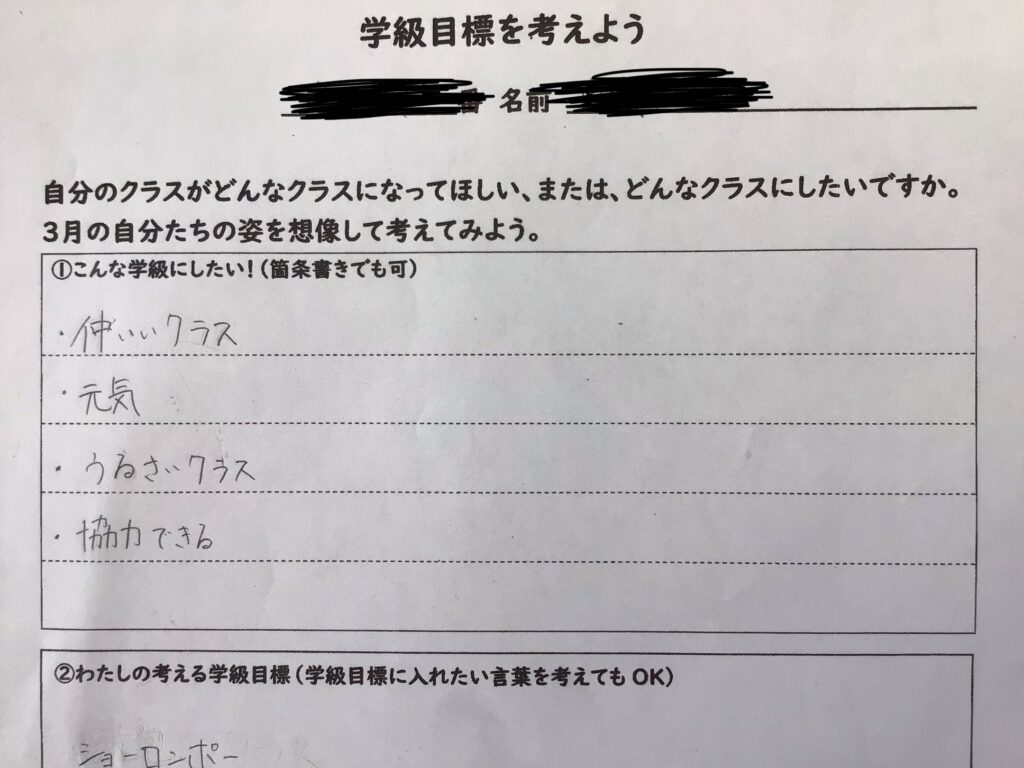 学級目標を考えよう
番 名前
自分のクラスがどんなクラスになってほしい、または、どんなクラスにしたいですか。
3月の自分たちの姿を想像して考えてみよう。
①こんな学級にしたい!(箇条書きでも可)
・仲いいクラス
・元気
・うるさいクラス
・協力できる
②わたしの考える学級目標(学級目標に入れたい言葉を考えてもOK)
ショーロンポー